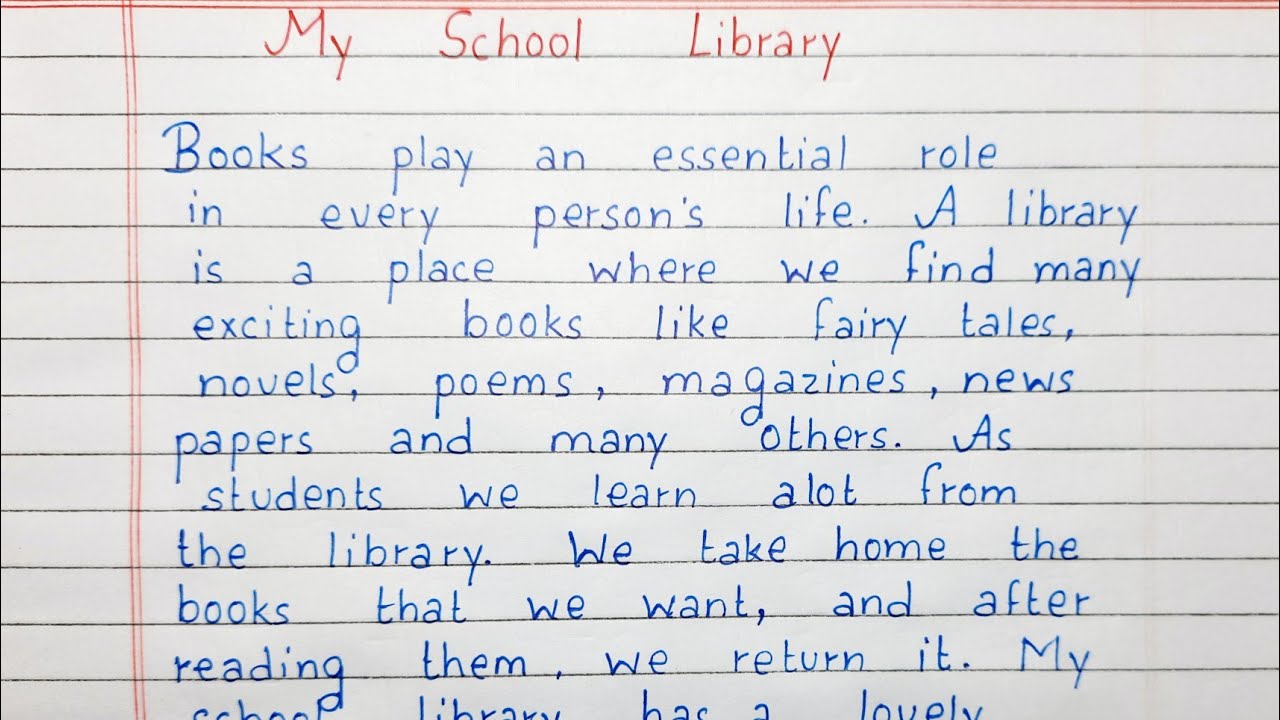 My School Library
Books play an essential role
in every person's life. A library
is a place where we find many
exciting books like fairy tales,
novels, poems, magazines, news
papers and many others. As
students we learn alot from
the library. We take home the
books that we want, and after
reading them, we return it. My
school library has a lovely